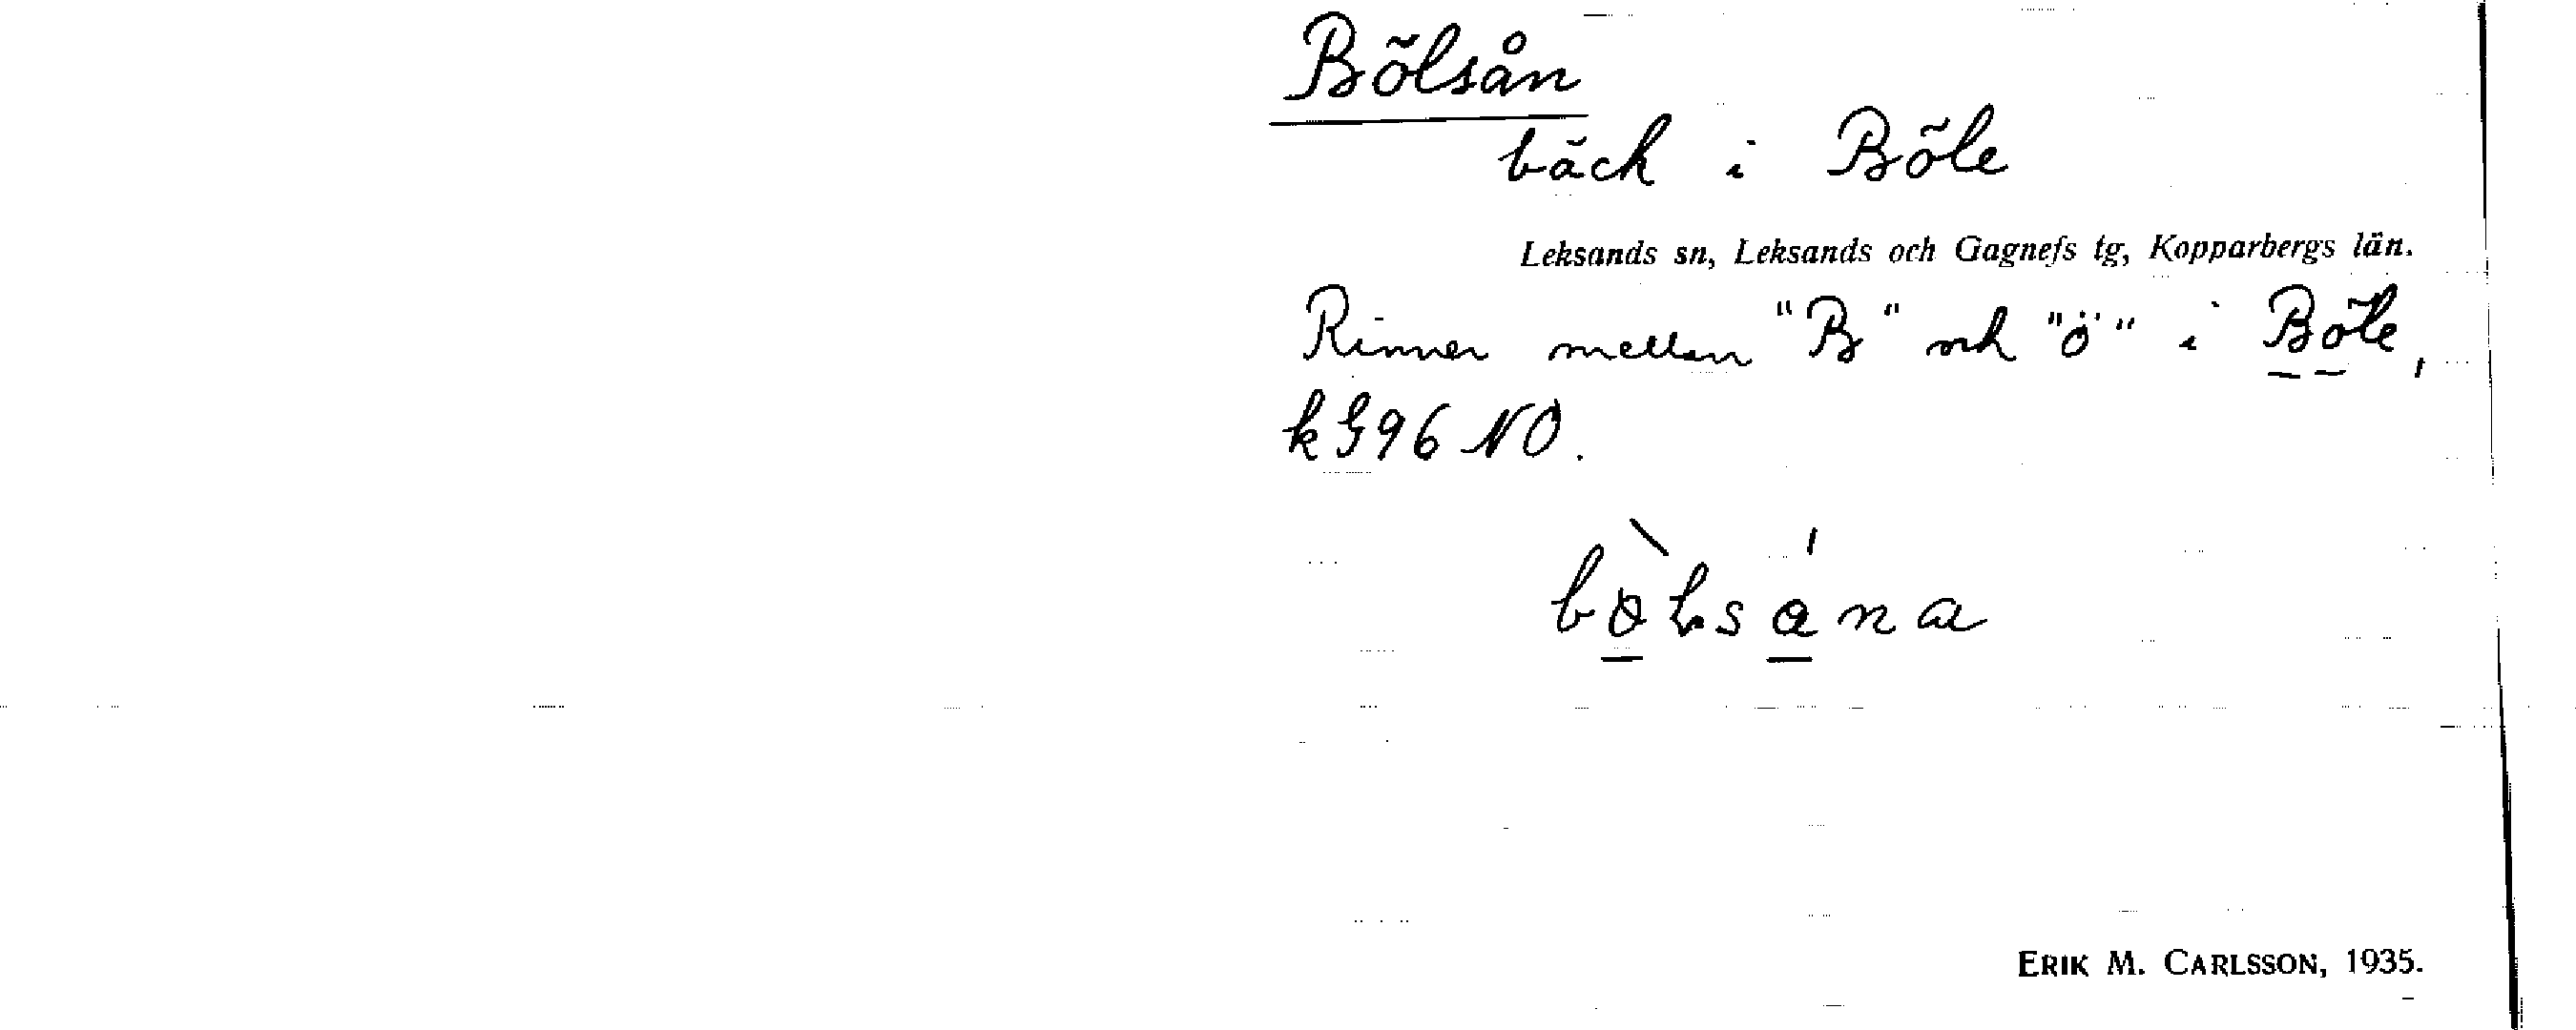 Bölsån
bäck i Böle
Leksands sn, Leksands och Gagnefs tg, Kopparbergs län.
Rinner mellan "B" och "ö" i Böle,
k G96 NO.
ERIK M. CARLSSON, 1935.